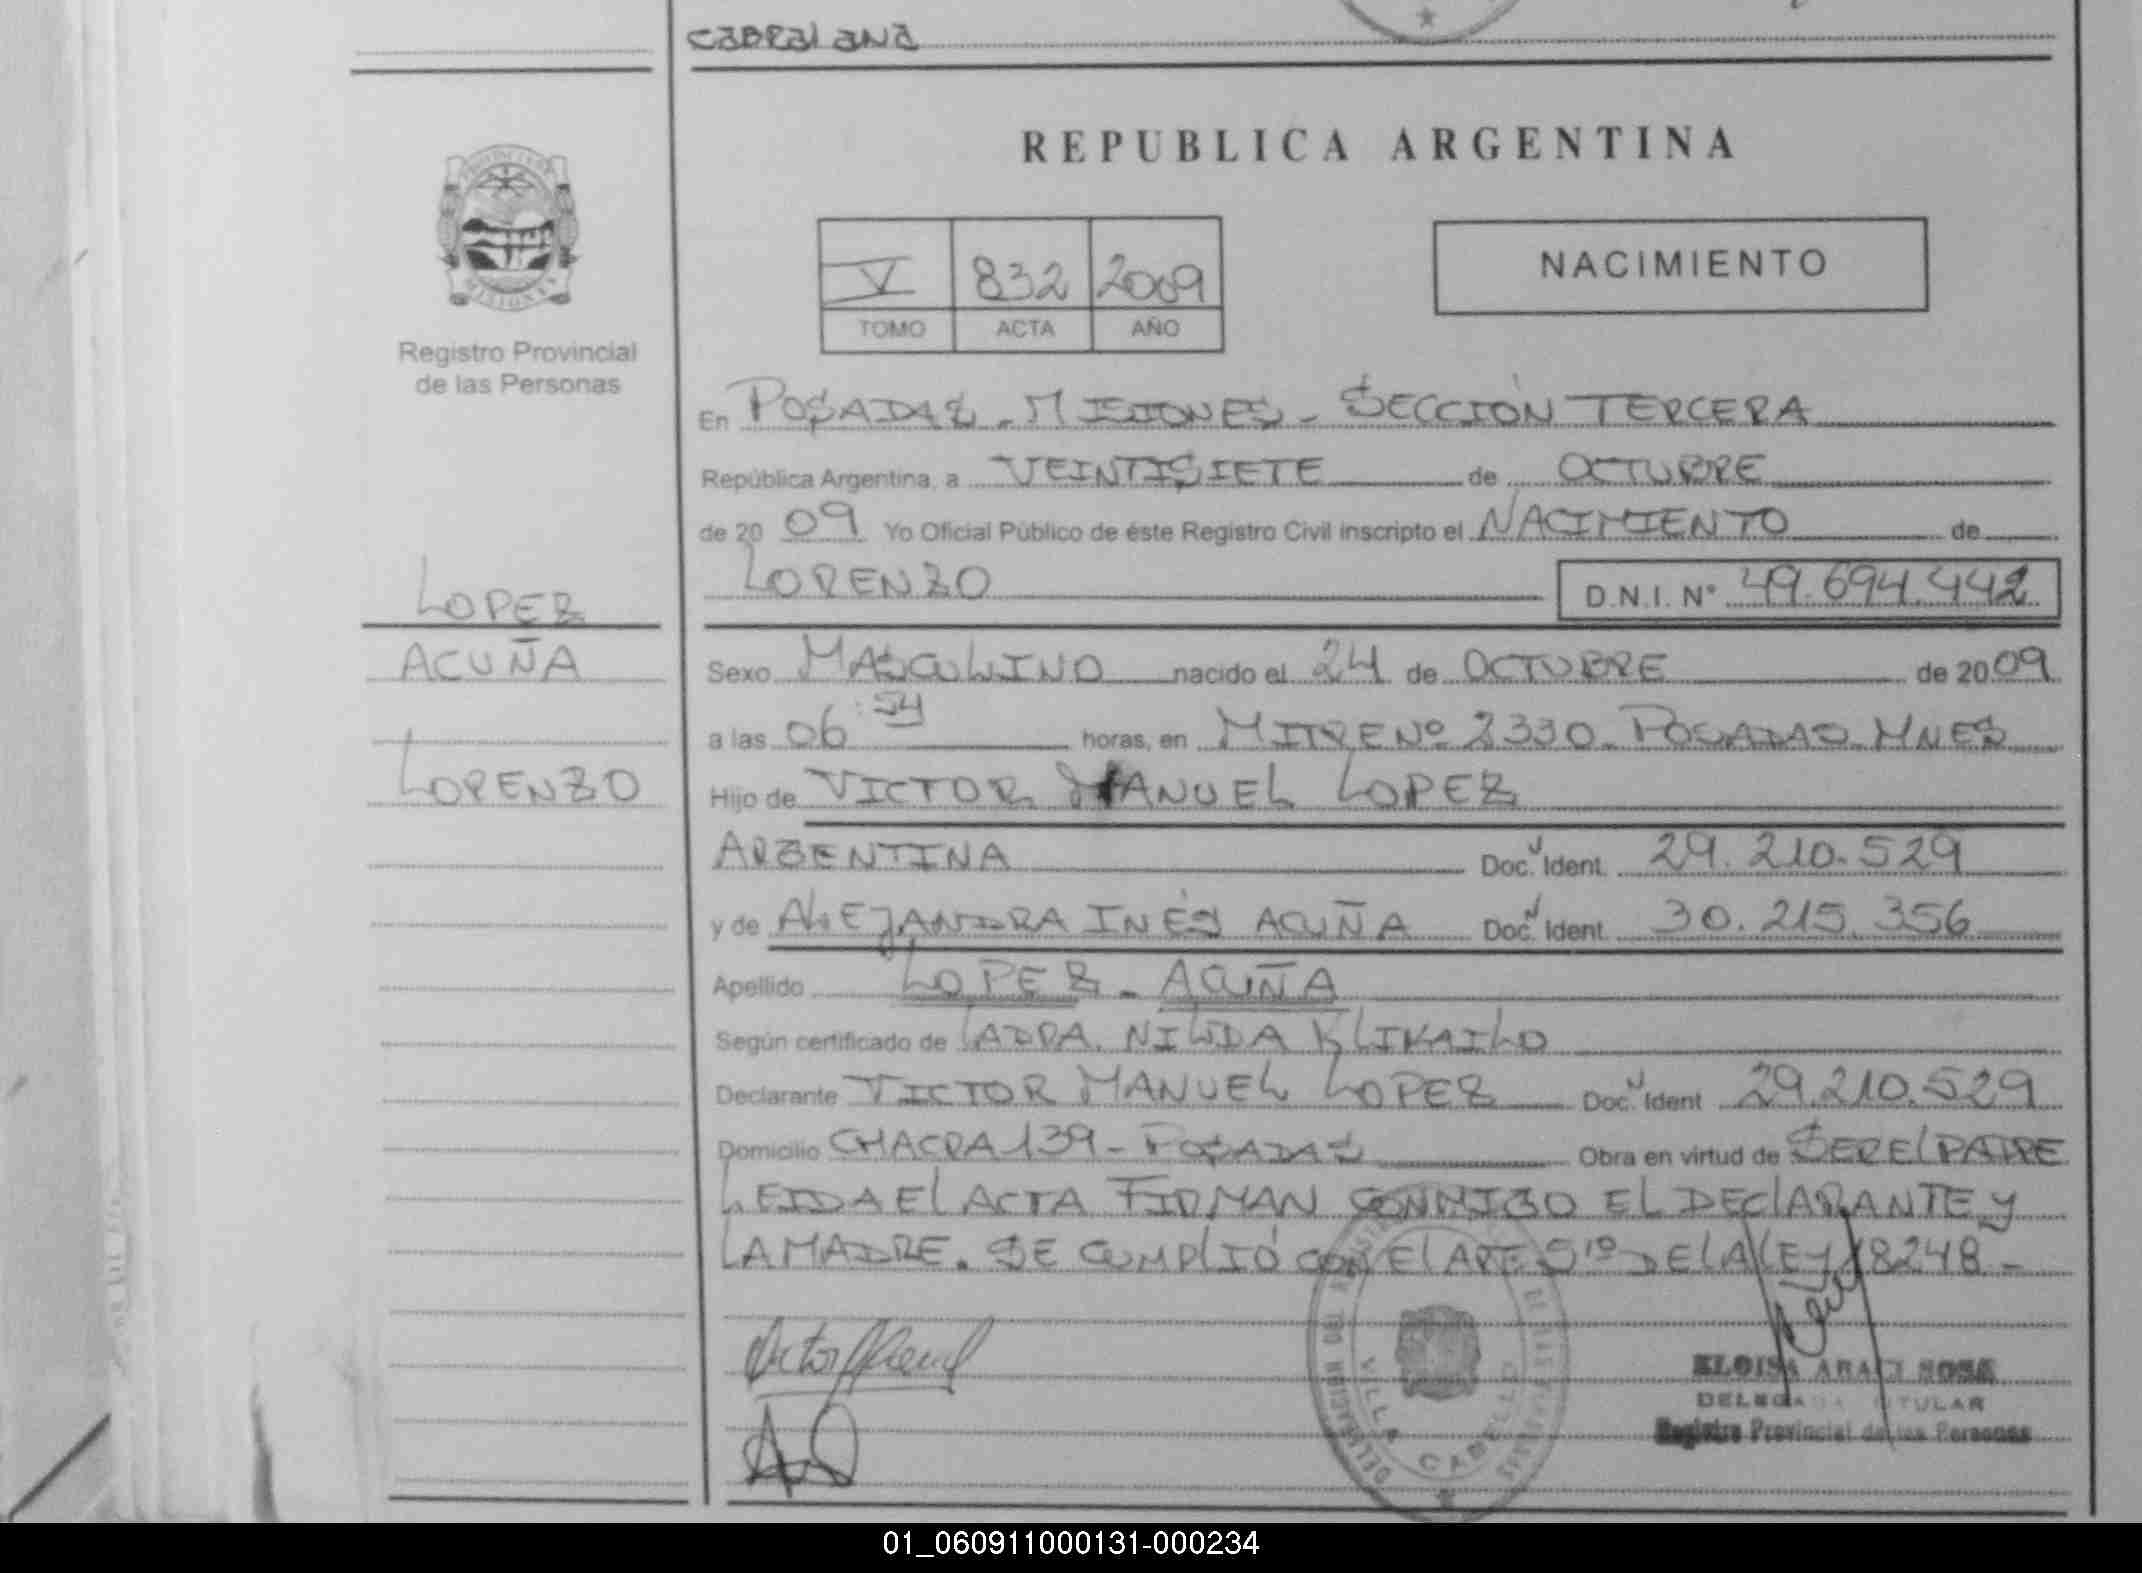 CABRAL ANA
PROVINCIA DE
MISIONES
Registro Provincial
de las Personas
REPUBLICA ARGENTINA
V 832 2009
TOMO ACTA AÑO
NACIMIENTO
En POSADAS - MISIONES - SECCIÓN TERCERA
República Argentina, a VEINTISIETE de OCTUBRE
de 2009 Yo Oficial Público de éste Registro Civil inscripto el NACIMIENTO de
LORENZO D.N.I. Nº 49.694.442
LOPEZ
ACUÑA
LORENZO
Sexo MASCULINO nacido el 24 de OCTUBRE de 2009
a las 06:54 horas, en MITRE Nº 2330 - POSADAS - MNES
Hijo de VICTOR MANUEL LOPEZ
ARGENTINA Doc. Ident. 29.210.529
y de ALEJANDRA INÉS ACUÑA Doc. Ident. 30.215.356
Apellido LOPEZ - ACUÑA
Según certificado de LA DRA. NILDA KLIKAILO
Declarante VICTOR MANUEL LOPEZ Doc. Ident 29.210.529
Domicilio CHACRA 139 - POSADAS Obra en virtud de SER EL PADRE
LEIDA EL ACTA FIRMAN CONMIGO EL DECLARANTE Y
LA MADRE. SE CUMPLIÓ CON EL ART 5º DE LA LEY 18248 -
VILLA CABELLO
ELOISA ARACI SOSA
DELEGADA TITULAR
Registro Provincial de las Personas
01_060911000131-000234